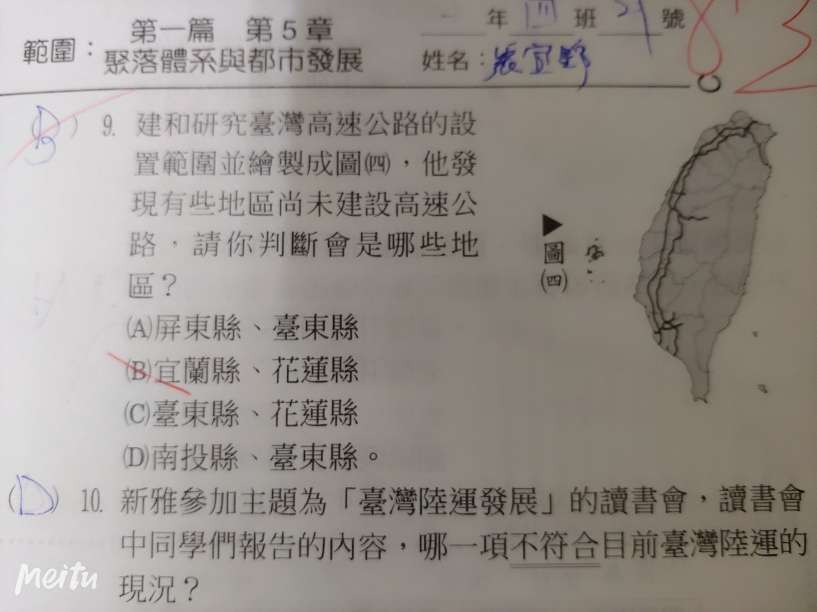 範圍：第一篇 第5章
聚落體系與都市發展
一年四班 號
姓名：張宜野
83
( ) 9. 建和研究臺灣高速公路的設
置範圍並繪製成圖㈣，他發
現有些地區尚未建設高速公
路，請你判斷會是哪些地
區？
(A)屏東縣、臺東縣
(B)宜蘭縣、花蓮縣
(C)臺東縣、花蓮縣
(D)南投縣、臺東縣。
▶
圖
㈣
(D) 10. 新雅參加主題為「臺灣陸運發展」的讀書會，讀書會
中同學們報告的內容，哪一項不符合目前臺灣陸運的
現況？
Meitu